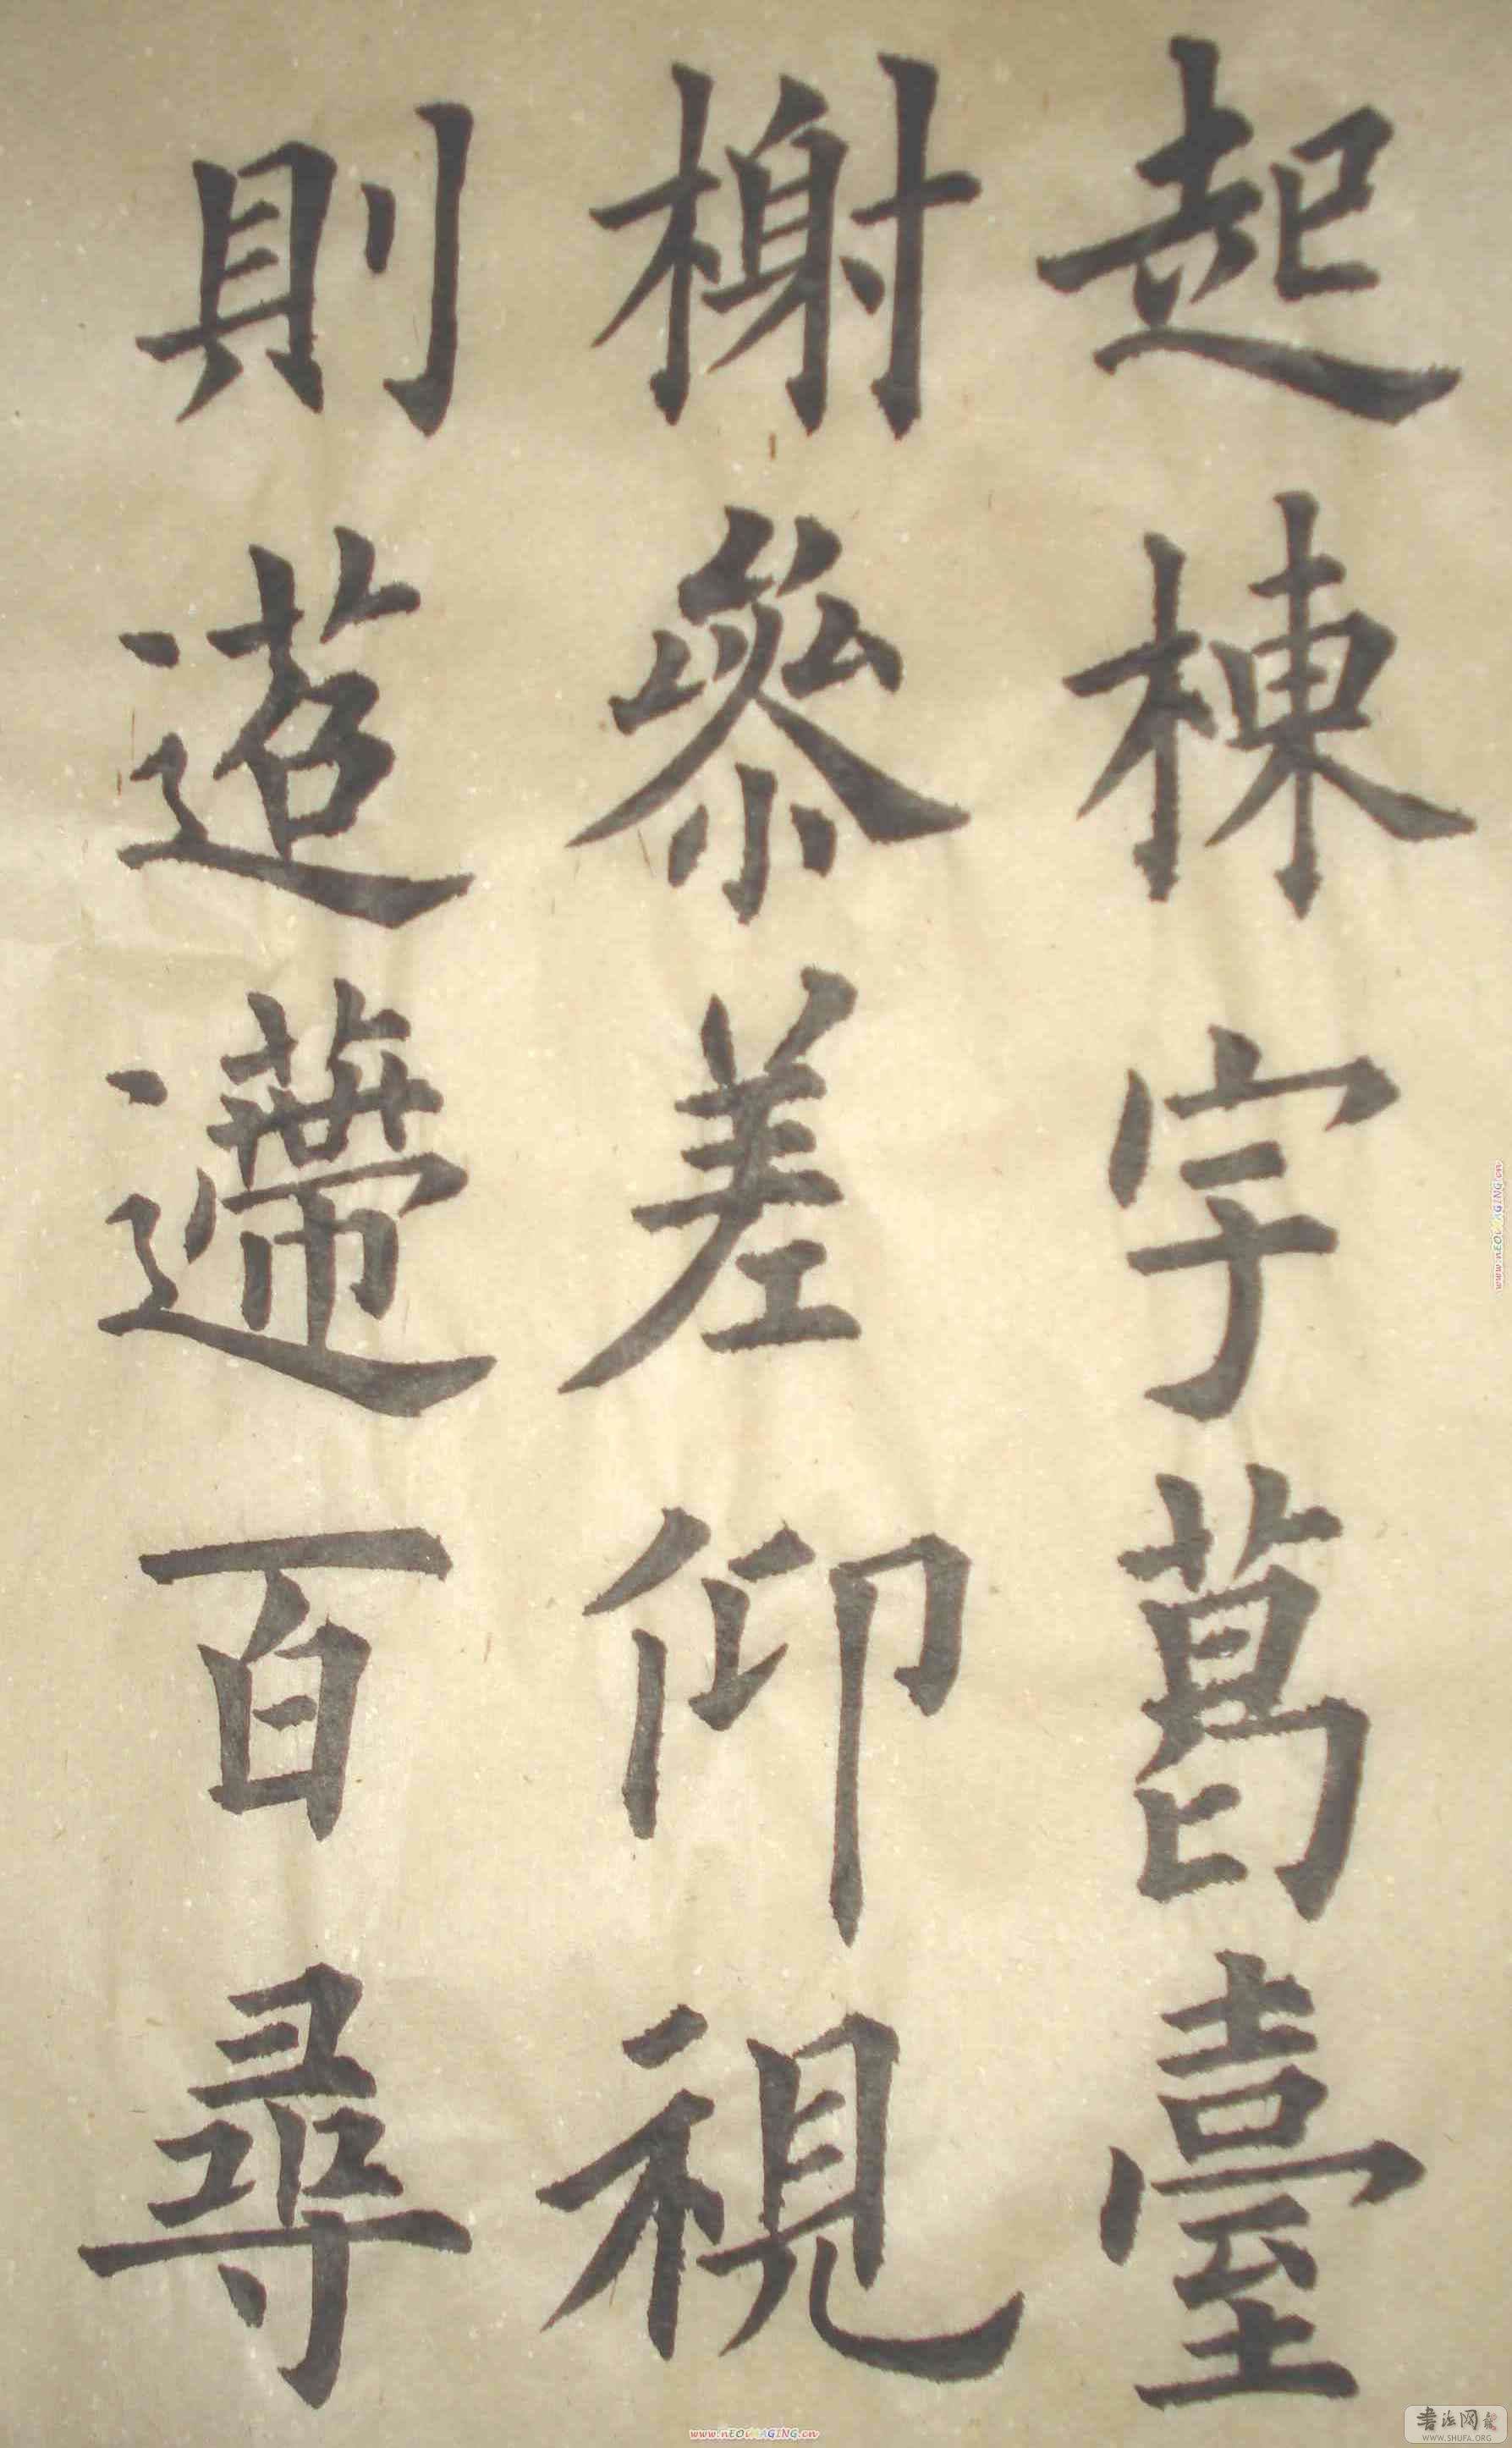 起棟宇葛臺
榭參差仰視
則迢遰百尋
www.nEOiMAGING.cn
www.nEOiMAGING.cn
书法网
WWW.SHUFA.ORG